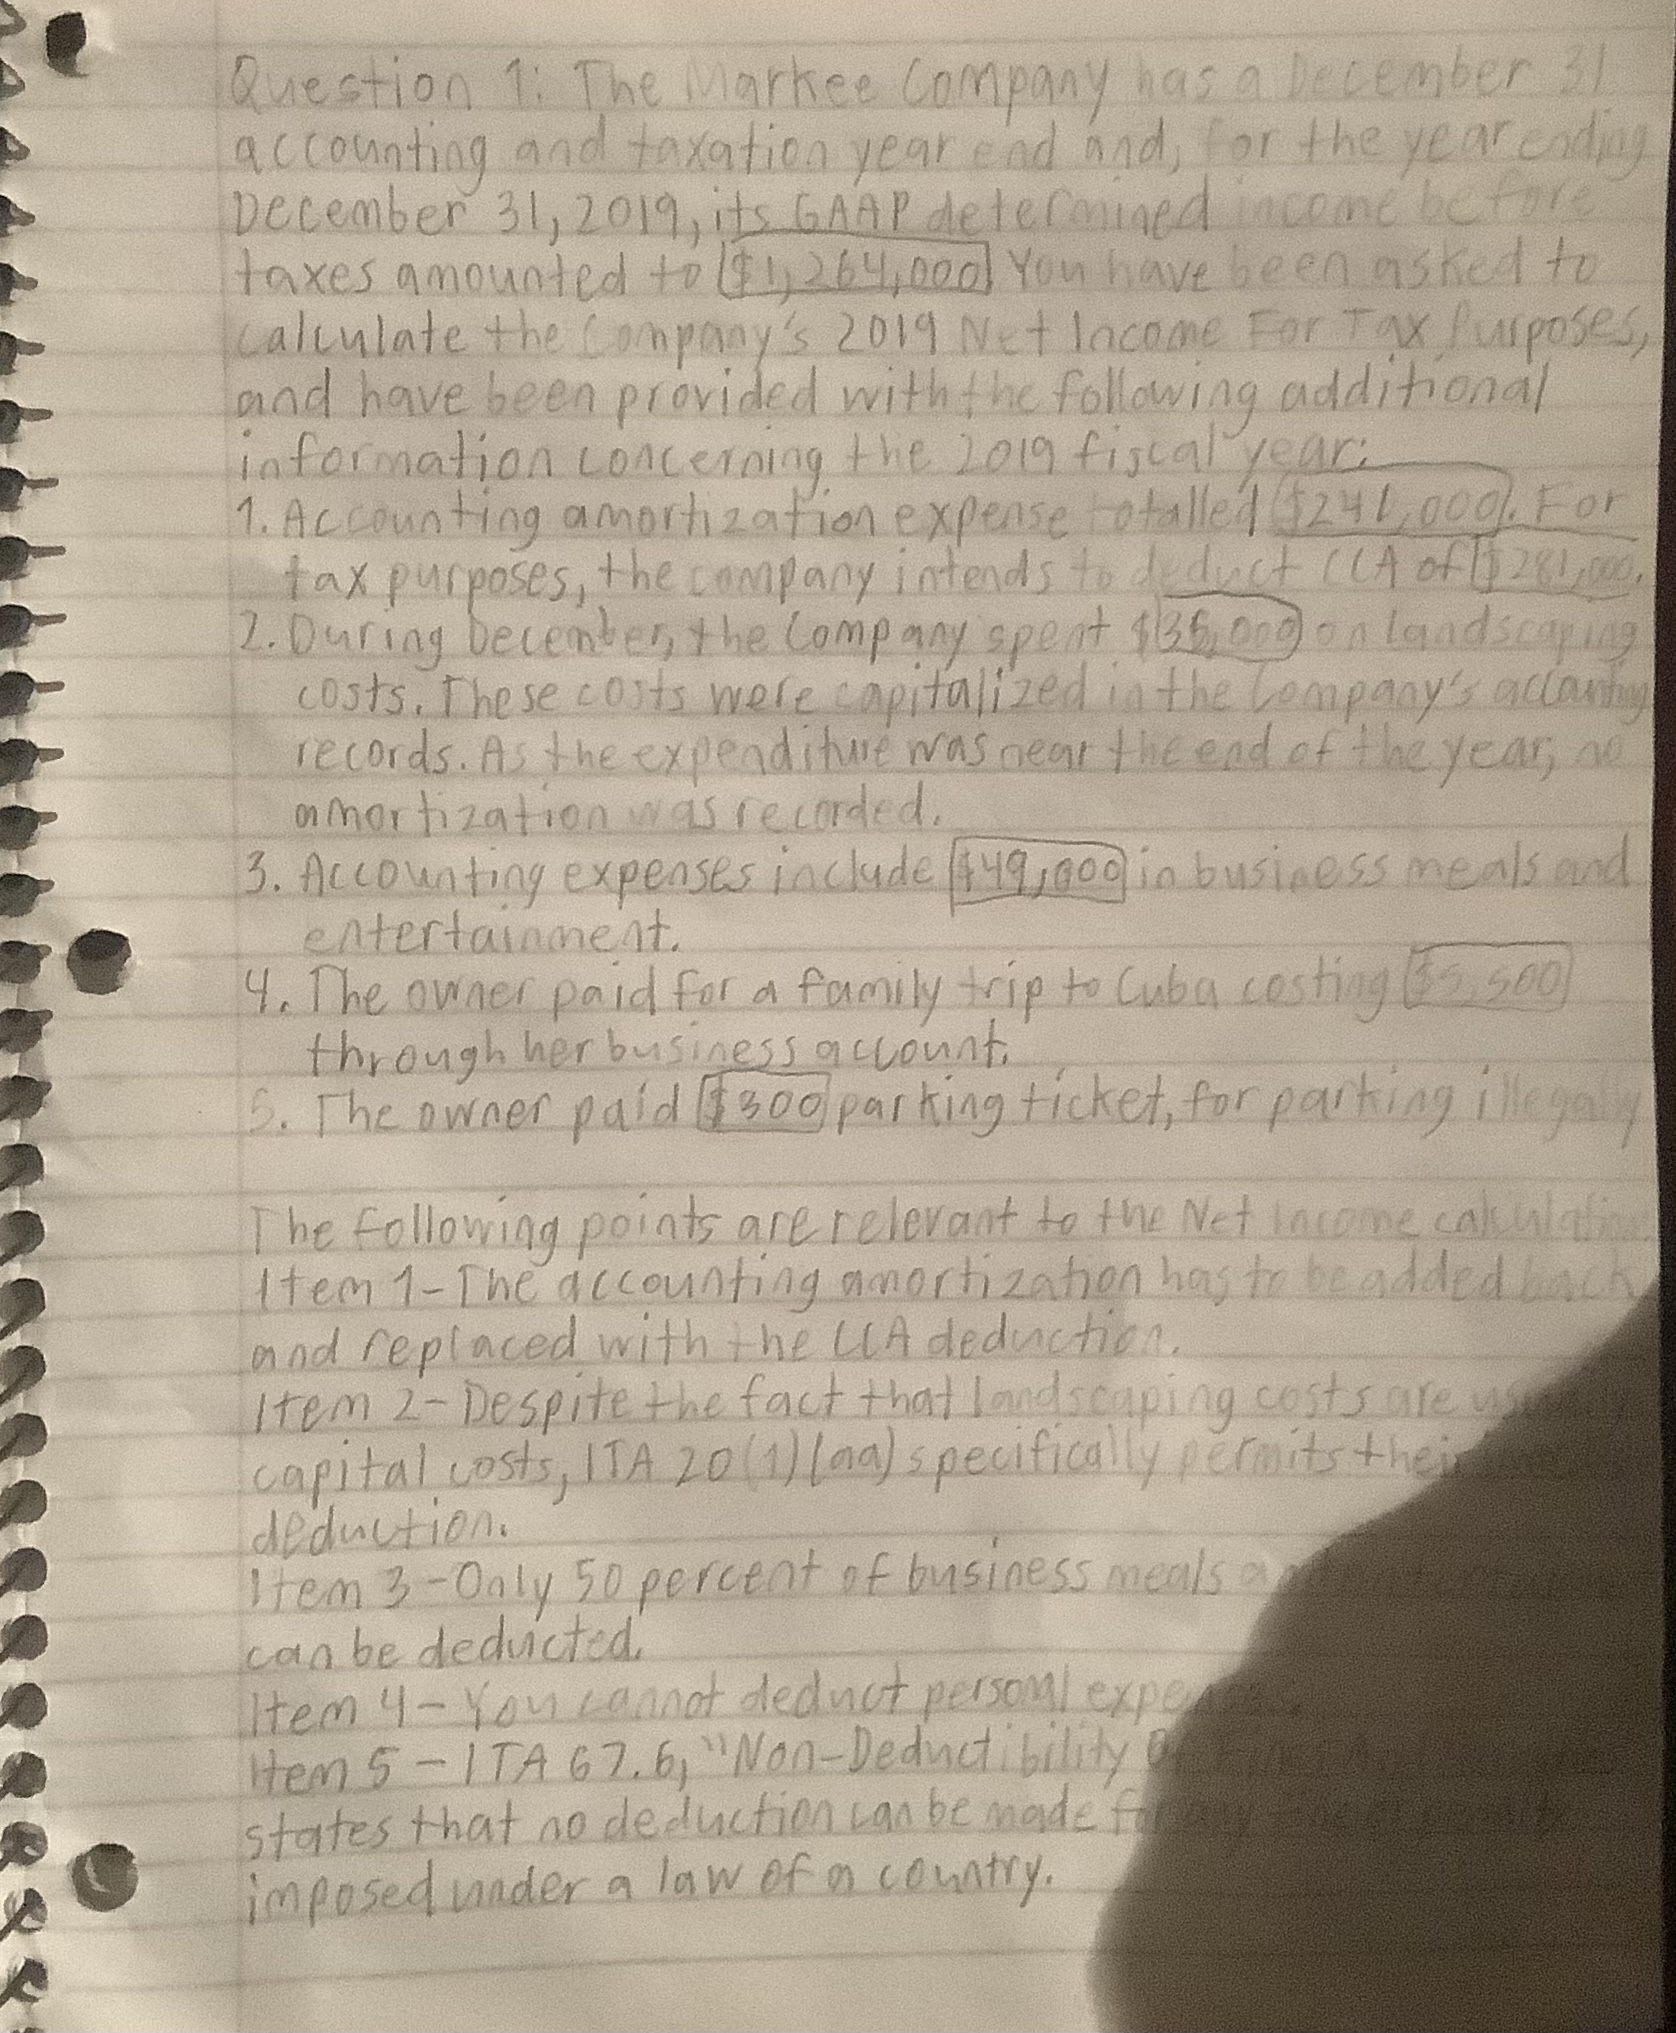 Question 1: The Markee Company has a December 31
accounting and taxation year end and, for the year ending
December 31, 2019, its GAAP determined income before
taxes amounted to $1,264,000. You have been asked to
calculate the Company's 2019 Net Income For Tax Purposes,
and have been provided with the following additional
information concerning the 2019 fiscal year:
1. Accounting amortization expense totalled $241,000. For
tax purposes, the company intends to deduct CCA of $281,000.
2. During December, the Company spent on landscaping
costs. These costs were capitalized in the Company's accounting
records. As the expenditure was near the end of the year, no
amortization was recorded.
3. Accounting expenses include $49,000 in business meals and
entertainment.
4. The owner paid for a family trip to Cuba costing
through her business account.
5. The owner paid $300 parking ticket, for parking illegally
The following points are relevant to the Net Income calculation
Item 1 - The accounting amortization has to be added back
and replaced with the CCA deduction.
Item 2 - Despite the fact that landscaping costs are
capital costs, ITA 20(1)(aa) specifically permits their
deduction.
Item 3 - Only 50 percent of business meals
can be deducted.
Item 4 - You cannot deduct personal
Item 5 - ITA 67.6, "Non-Deductibility
states that no deduction can be made
imposed under a law of a country.